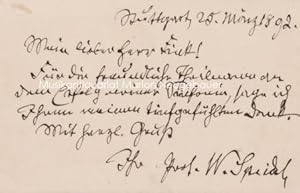 Stuttgart 25. März 1892.
Mein lieber Herr Fink!
Für die freundliche Theilnahme an
dem Erfolg meines, sage ich
Ihnen meinen tiefgefühlten Dank.
Mit herzl. Gruß
Ihr Prof. W. Speidel